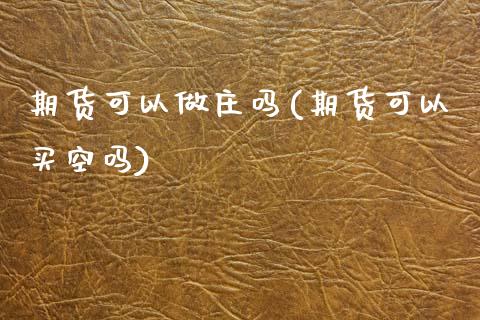 期货可以做庄吗(期货可以
买空吗)